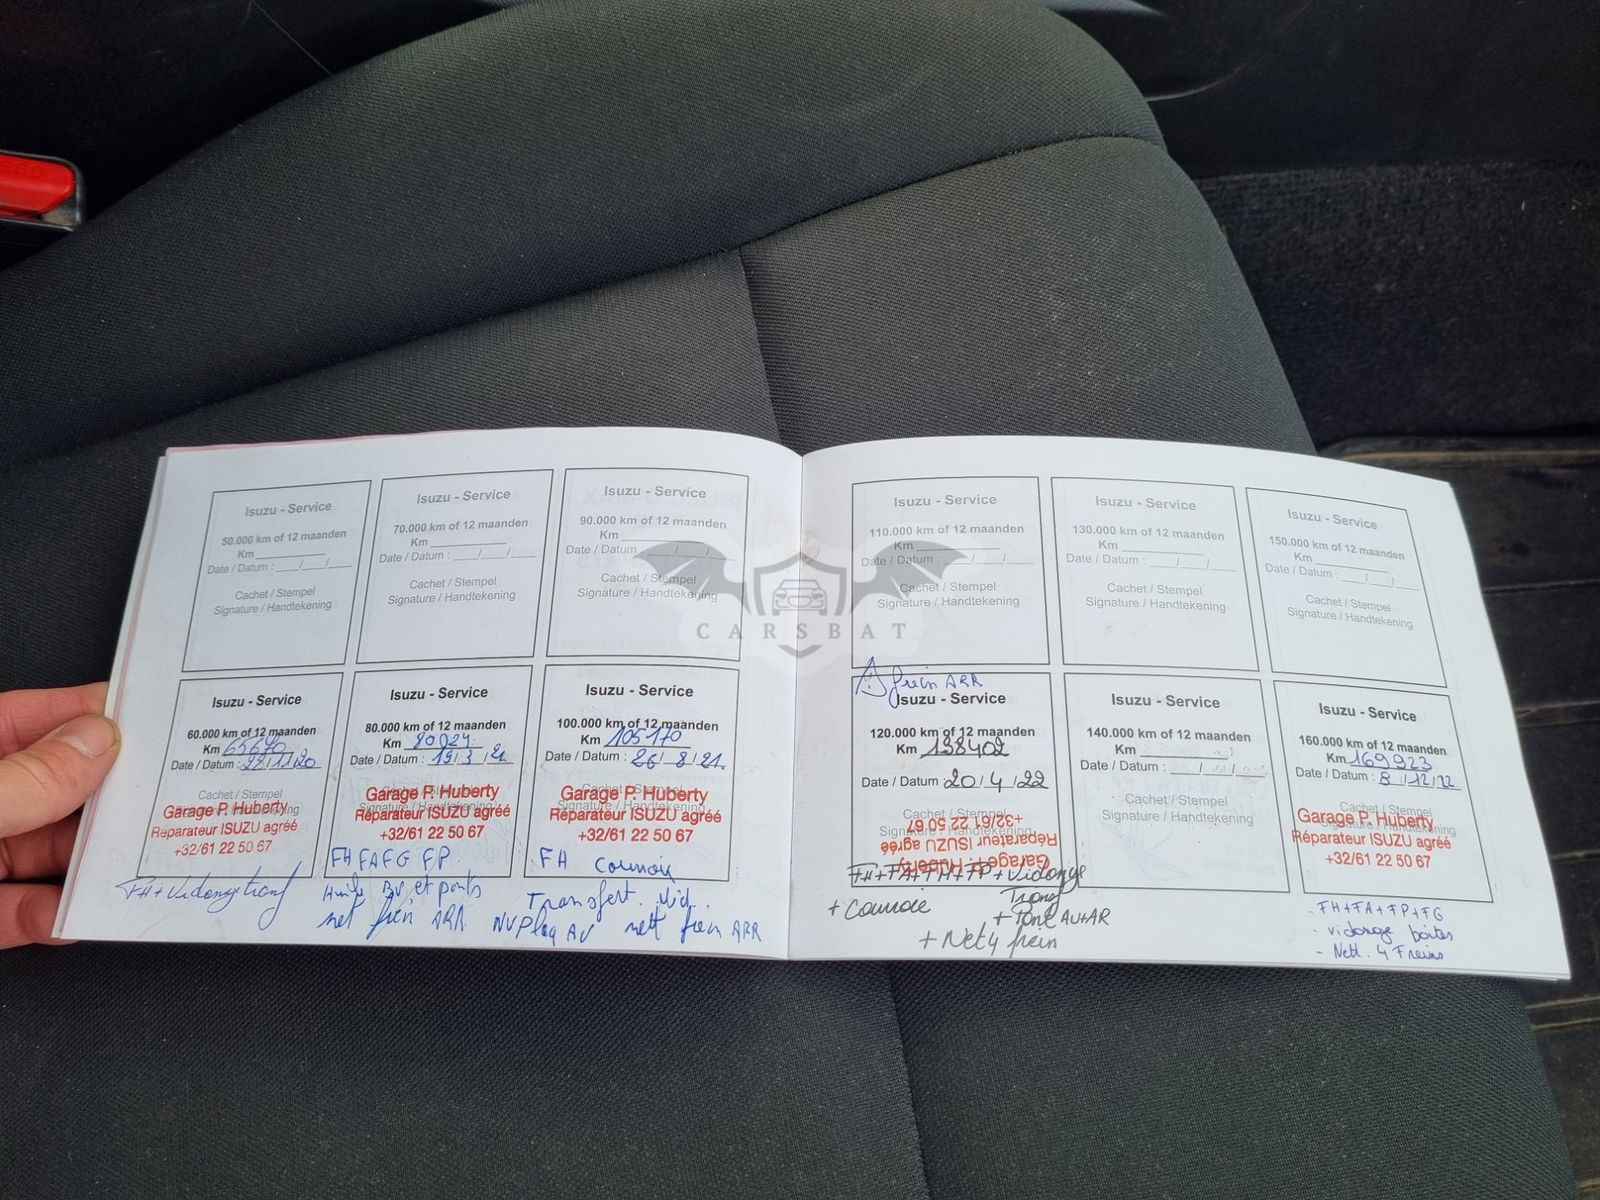 Isuzu - Service
50.000 km of 12 maanden
Km
Date / Datum : / /
Cachet / Stempel
Signature / Handtekening
Isuzu - Service
70.000 km of 12 maanden
Km
Date / Datum : / /
Cachet / Stempel
Signature / Handtekening
Isuzu - Service
90.000 km of 12 maanden
Km
Date / Datum : / /
Cachet / Stempel
Signature / Handtekening
Isuzu - Service
110.000 km of 12 maanden
Km
Date / Datum : / /
Cachet / Stempel
Signature / Handtekening
Isuzu - Service
130.000 km of 12 maanden
Km
Date / Datum : / /
Cachet / Stempel
Signature / Handtekening
Isuzu - Service
150.000 km of 12 maanden
Km
Date / Datum : / /
Cachet / Stempel
Signature / Handtekening
CARSBAT
Isuzu - Service
60.000 km of 12 maanden
Km 65670
Date / Datum : /11/20
Cachet / Stempel
Signature / Handtekening
Garage P. Huberty
Réparateur ISUZU agréé
+32/61 22 50 67
FH + Vidange
Isuzu - Service
80.000 km of 12 maanden
Km
Date / Datum : 19/3/21
Cachet / Stempel
Signature / Handtekening
Garage P. Huberty
Réparateur ISUZU agréé
+32/61 22 50 67
FH FA FG FP
Huile BV et ponts
net frein ARR
Isuzu - Service
100.000 km of 12 maanden
Km 105170
Date / Datum : 26/8/21
Cachet / Stempel
Signature / Handtekening
Garage P. Huberty
Réparateur ISUZU agréé
+32/61 22 50 67
FH Courroie
Transfert. Vid.
NV Plaq AV nett frein ARR
frein ARR
Isuzu - Service
120.000 km of 12 maanden
Km 138402
Date / Datum 20/4/22
Cachet / Stempel
Signature / Handtekening
Garage P. Huberty
Réparateur ISUZU agréé
+32/61 22 50 67
FH + FA + FH + FP + Vidange
+ Courroie
+ Pont AV+AR
+ Net 4 frein
Isuzu - Service
140.000 km of 12 maanden
Km
Date / Datum : / /
Cachet / Stempel
Signature / Handtekening
Isuzu - Service
160.000 km of 12 maanden
Km 169923
Date / Datum : 8/12/22
Cachet / Stempel
Signature / Handtekening
Garage P. Huberty
Réparateur ISUZU agréé
+32/61 22 50 67
- FH+FA+FP+FG
- vidange boites
- Nett. 4 Freins